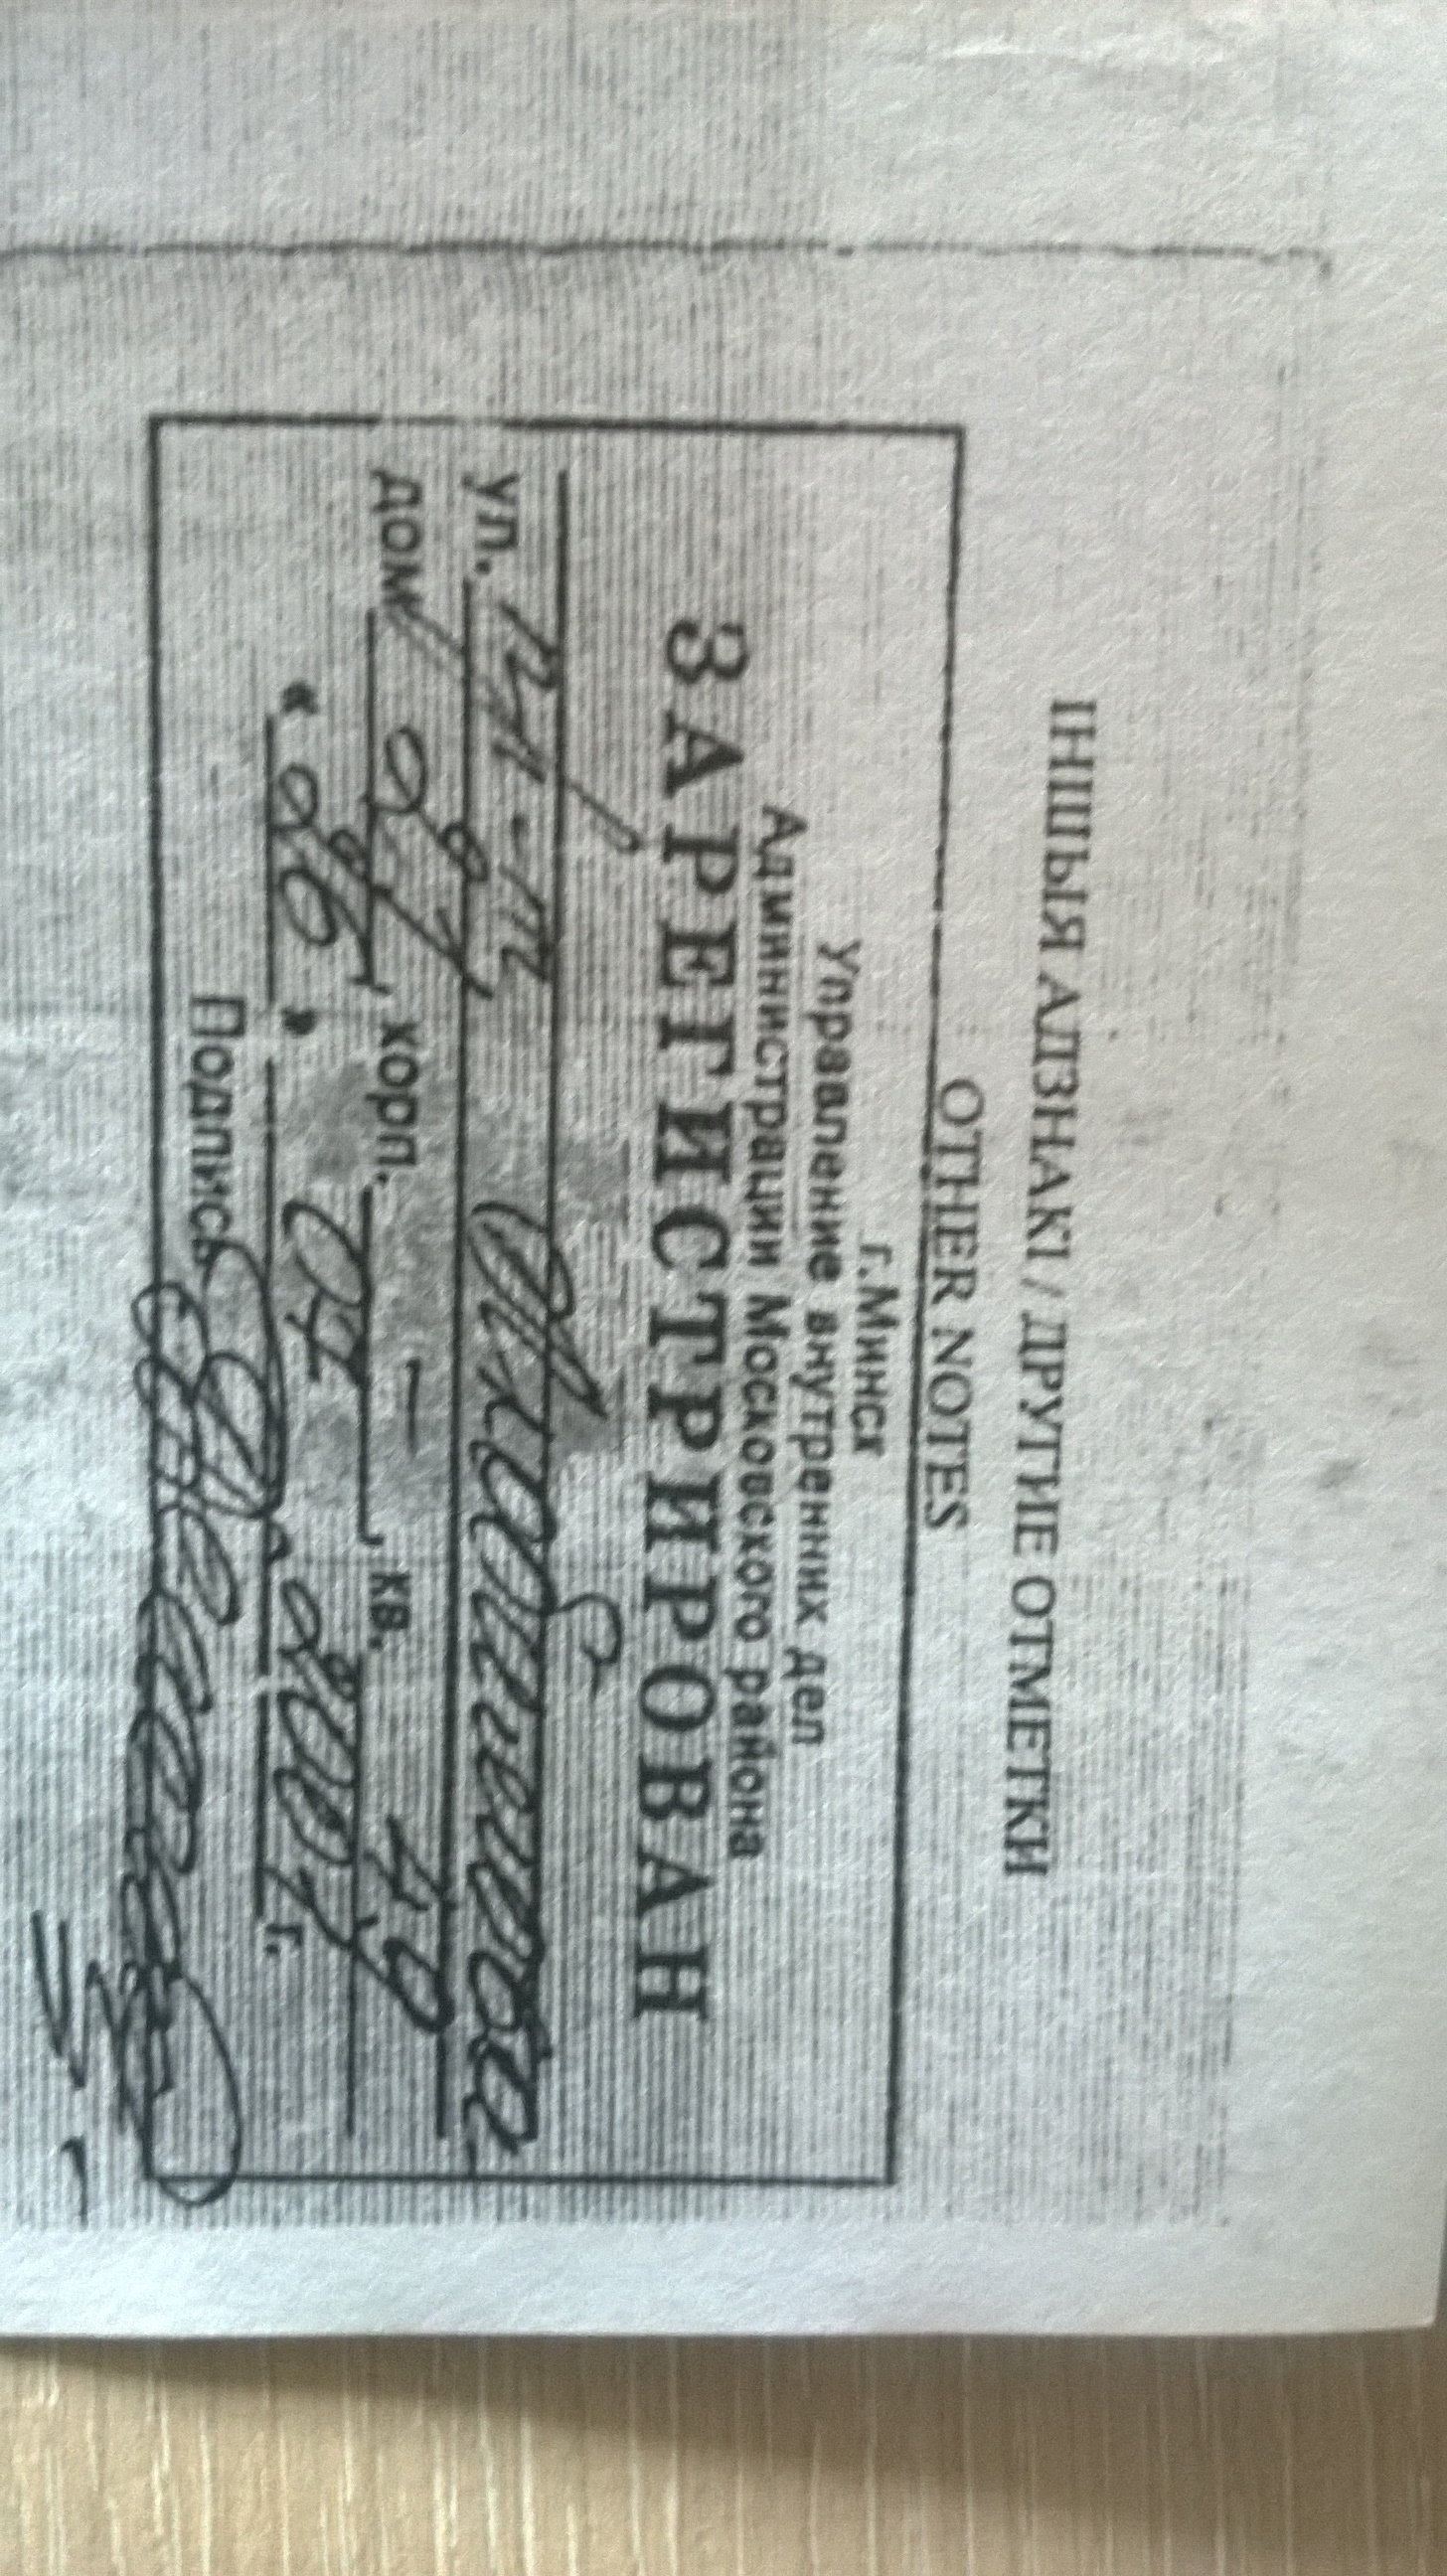 ІНШЫЯ АДЗНАКІ / ДРУГИЕ ОТМЕТКИ
OTHER NOTES
г.Минск
Управление внутренних дел
Администрации Московского района
ЗАРЕГИСТРИРОВАН
ул. пр-т
дом 27, корп. —, кв. 49
« 26 » 04 2007 г.
Подпись